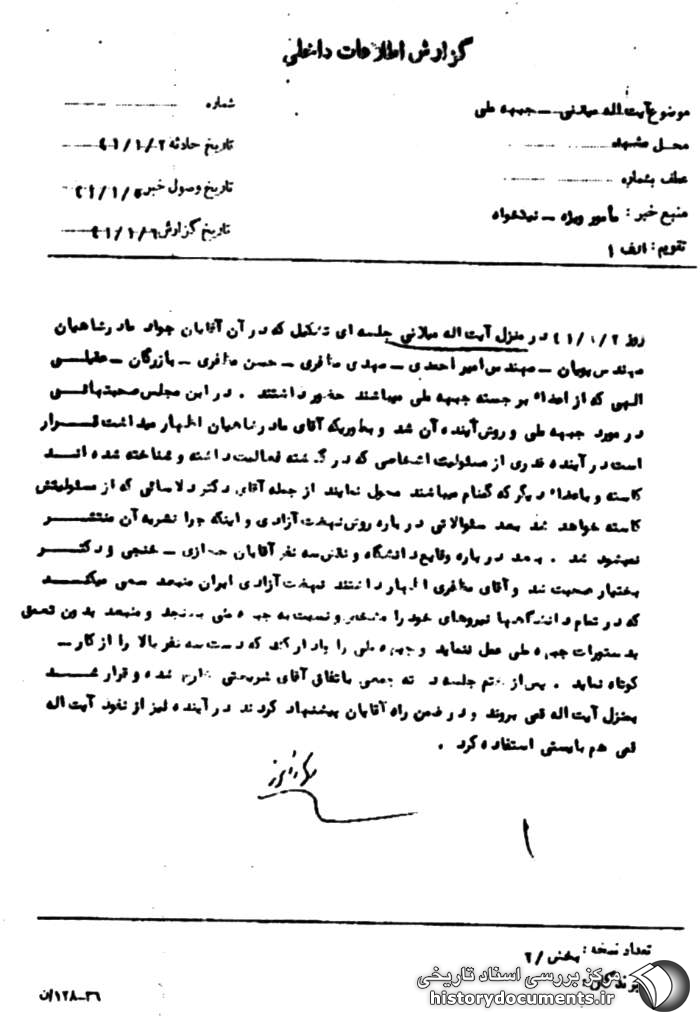 گزارش اطلاعات داخلی
موضوع آیت اله میلانی – جبهه ملی
شماره
محل مشهد
تاریخ حادثه ۴۱/۱/۲
عطف بشماره
تاریخ وصول خبر ۴۱/۱/۵
منبع خبر : مأمور ویژه – نیکخواه
تاریخ گزارش ۴۱/۱/۶
تقویم : الف ۱
روز ۴۱/۱/۲ در منزل آیت اله میلانی جلسه ای تشکیل که در آن آقایان جواد مادرشاهیان
مهندس پویان – مهندس امیراحمدی – مهدی مظفری – حسن مظفری – بازرگان – عقیلی
الهی که از اعضاء برجسته جبهه ملی میباشند حضور داشتند . در این مجلس صحبتهائی
در مورد جبهه ملی و روش آینده آن شد و بطوریکه آقای مادرشاهیان اظهار میداشت قرار
است در آینده قدری از مسئولیت اشخاصی که در گذشته فعالیت داشته و شناخته شده اند
کاسته و باعضاء دیگر که گمنام میباشند محول نمایند از جمله آقای دکتر که از مسئولیتش
کاسته خواهد شد بعد سئوالاتی در باره روش نهضت آزادی و اینکه چرا نشریه آن منتشر
نمیشود شد . بعد در باره وقایع دانشگاه و نقش سه نفر آقایان حجازی – خنجی و دکتر
بختیار صحبت شد و آقای مظفری اظهار داشتند نهضت آزادی ایران منبعد سعی میکند
که در تمام دانشگاهها نیروهای خود را متشکل و نسبت به جبهه ملی بسنجد و منبعد بدون تعمق
بدستورات جبهه ملی عمل ننماید و جبهه ملی را وادار کند که دست سه نفر بالا را از کار –
کوتاه نماید . پس از ختم جلسه جمعی باتفاق آقای شریعتی خارج شده و قرار شد
بمنزل آیت اله قمی بروند و در ضمن راه آقایان پیشنهاد کردند در آینده نیز از نفوذ آیت اله
قمی هم بایستی استفاده کرد .
۱
تعداد نسخه :
بخش /۲
مرکز بررسی اسناد تاریخی
historydocuments.ir
۳۶–۱۲۸/ن